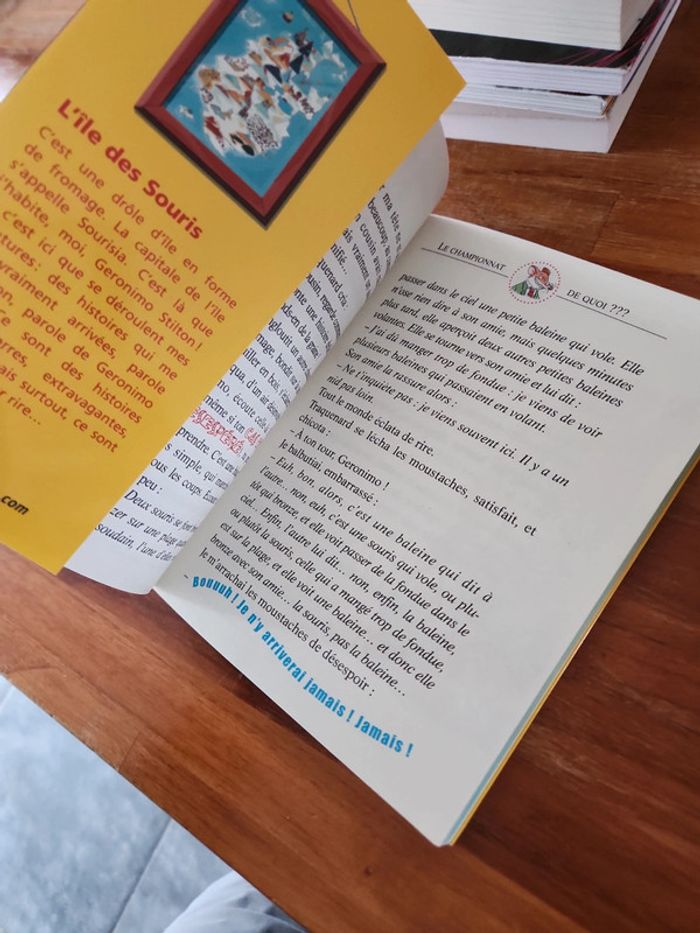 L'île des Souris
C'est une drôle d'île en forme
de fromage. La capitale de l'île
s'appelle Sourisia. C'est là que
j'habite, moi, Geronimo Stilton !
c'est ici que se déroulent mes
tures : des histoires qui me
vraiment arrivées, parole
on, parole de Geronimo
Ce sont des histoires
rres, extravagantes,
ais surtout, ce sont
r rire...
.com
r ma tête ne
beaucoup, au
on cousin
ais vraiment
nifié...
quenard cris
usin, regarde comme
nte une histoire
ds-en de la graine
même si ton
prendre. C'est une
s simple, qui
ous les coups. Écoute
peu :
Deux souris se font
zer sur une plage
soudain, l'une d'el
LE CHAMPIONNAT DE QUOI ???
passer dans le ciel une petite baleine qui vole. Elle
n'ose rien dire à son amie, mais quelques minutes
plus tard, elle aperçoit deux autres petites baleines
volantes. Elle se tourne vers son amie et lui dit :
– J'ai dû manger trop de fondue : je viens de voir
plusieurs baleines qui passaient en volant.
Son amie la rassure alors :
– Ne t'inquiète pas : je viens souvent ici. Il y a un
nid pas loin.
Tout le monde éclata de rire.
Traquenard se lécha les moustaches, satisfait, et
chicota :
– À ton tour, Geronimo !
Je balbutiai, embarrassé :
– Euh, bon, alors, c'est une baleine qui dit à
l'autre... non, euh, c'est une souris qui vole, ou plu-
tôt qui bronze, et elle voit passer de la fondue dans le
ciel... Enfin, l'autre lui dit... non, enfin, la baleine,
ou plutôt la souris, celle qui a mangé trop de fondue,
est sur la plage, et elle voit une baleine... et donc elle
bronze avec son amie... la souris, pas la baleine...
Je m'arrachai les moustaches de désespoir :
– Bouuuh ! Je n'y arriverai jamais ! Jamais !